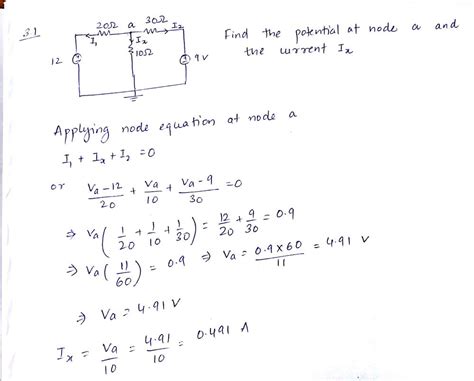 3.1
20Ω a 30Ω
I₁ Iₓ I₂
10Ω
12 9V
Find the potential at node a and
the current Iₓ
Applying node equation at node a
I₁ + Iₓ + I₂ = 0
or (Va-12)/20 + Va/10 + (Va-9)/30 = 0
⇒ Va(1/20 + 1/10 + 1/30) = 12/20 + 9/30 = 0.9
⇒ Va(11/60) = 0.9 ⇒ Va = (0.9×60)/11 = 4.91 V
⇒ Va = 4.91 V
Iₓ = Va/10 = 4.91/10 = 0.491 A